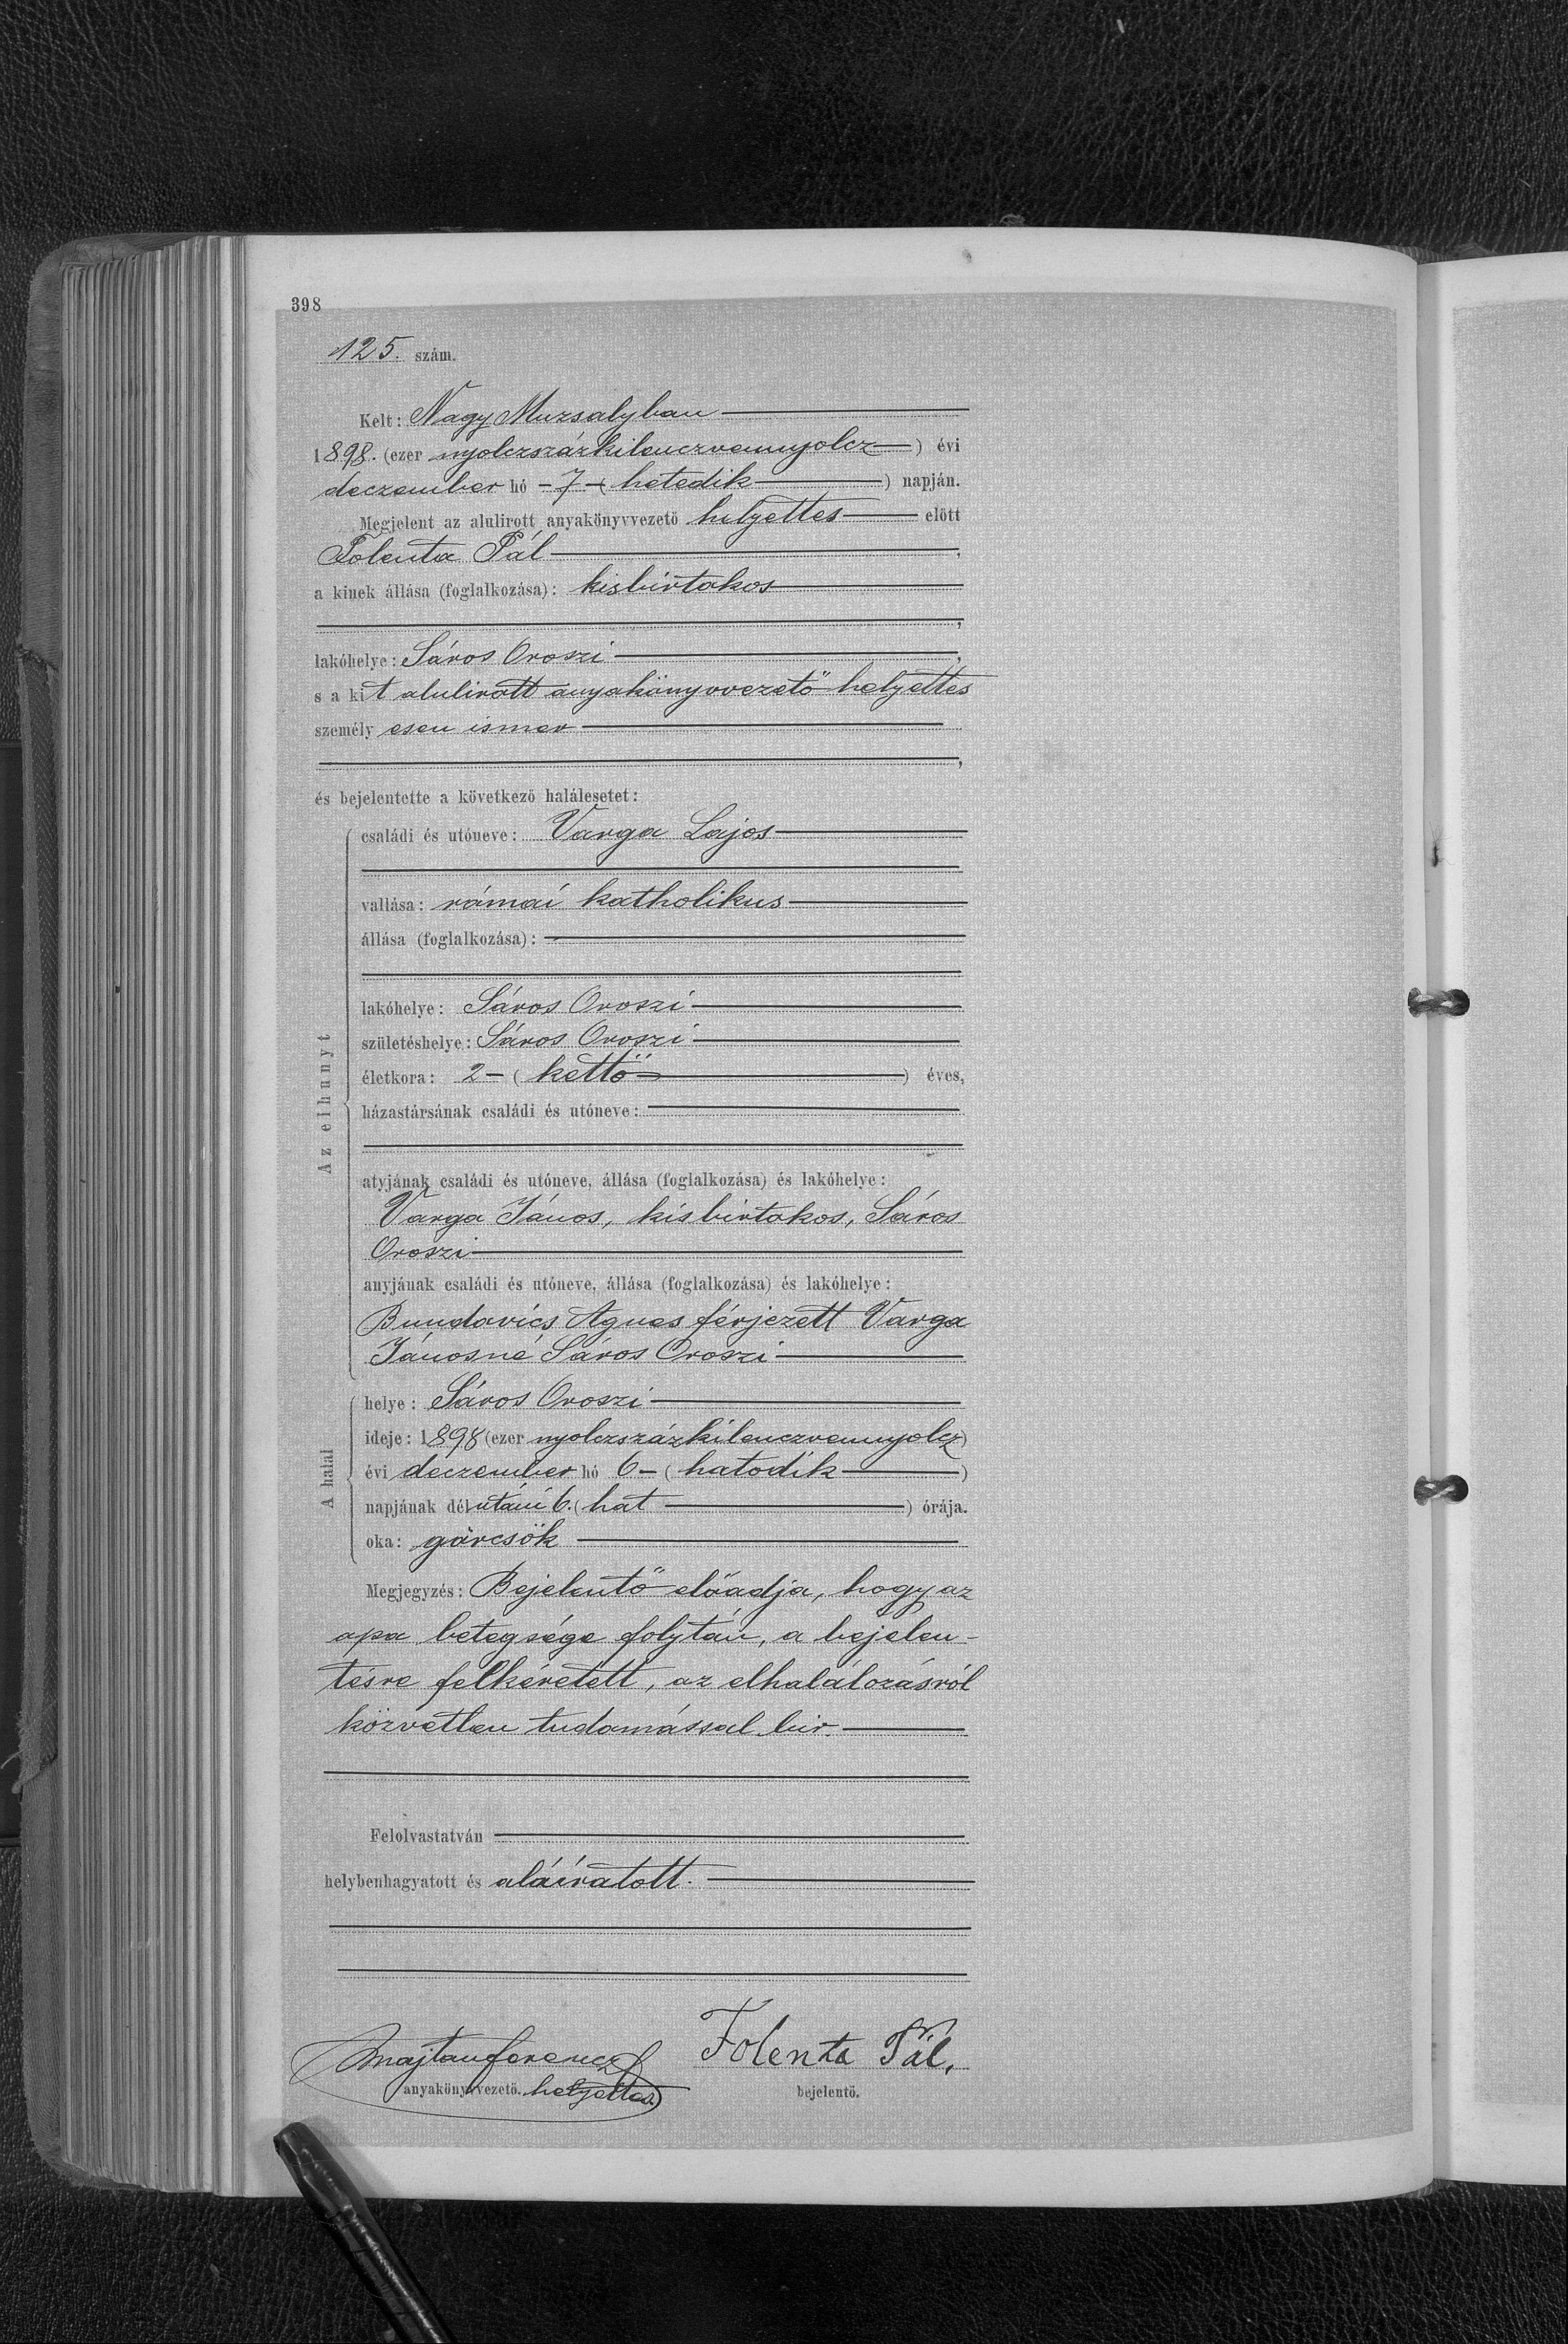 398
125. szám.
Kelt: Nagy Muzsalyban
1898. (ezer nyolczszázkilenczvennyolcz) évi
deczember hó - 7 - (hetedik) napján.
Megjelent az alulirott anyakönyvvezető helyettes előtt
Folenta Pál,
a kinek állása (foglalkozása): kisbirtokos
,
lakóhelye: Sáros Oroszi,
s a kit alulirott anyakönyvvezető helyettes
személyesen ismer
,
és bejelentette a következő halálesetet:
Az elhunyt
családi és utóneve: Varga Lajos
vallása: római katholikus
állása (foglalkozása):
lakóhelye: Sáros Oroszi
születéshelye: Sáros Oroszi
életkora: 2 - (kettő) éves,
házastársának családi és utóneve:
atyjának családi és utóneve, állása (foglalkozása) és lakóhelye:
Varga János, kisbirtokos, Sáros
Oroszi
anyjának családi és utóneve, állása (foglalkozása) és lakóhelye:
Bundovics Ágnes férjezett Varga
Jánosné Sáros Oroszi
A halál
helye: Sáros Oroszi
ideje: 1898 (ezer nyolczszázkilenczvennyolcz)
évi deczember hó 6 - (hatodik)
napjának délutáni 6. (hat) órája.
oka: görcsök
Megjegyzés: Bejelentő előadja, hogy az
apa betegsége folytán, a bejelen-
tésre felkéretett, az elhalálozásról
közvetlen tudomással bir.
Felolvastatván
helybenhagyatott és aláíratott.
Majtan Ferencz Folenta Pál,
anyakönyvvezető. helyettes. bejelentő.